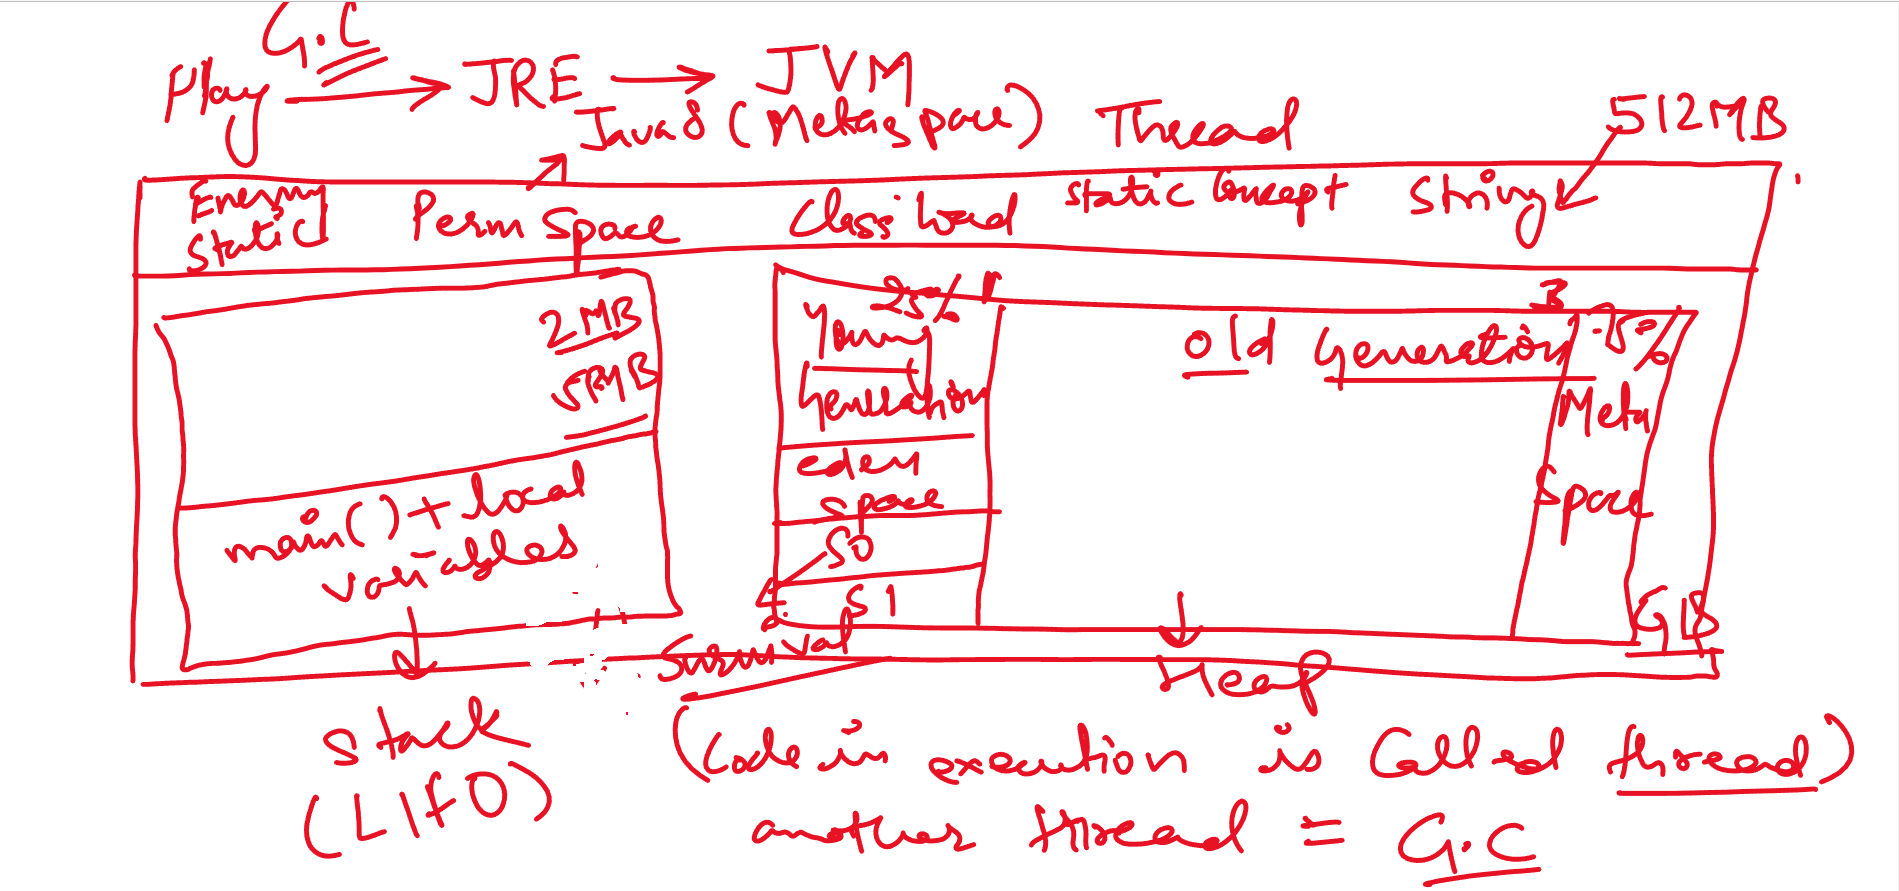 G.C
Play → JRE → JVM
Java8 (Metaspace) Thread 512MB
Enermy static Perm Space Class load static Concept String
2MB
5MB
main() + local
variables
stack
(LIFO)
25%
Young
Generation
eden
space
S0
S1
Survival
old Generation 75%
Meta
Space
GB
Heap
(Code in execution is Called thread)
another thread = G.C